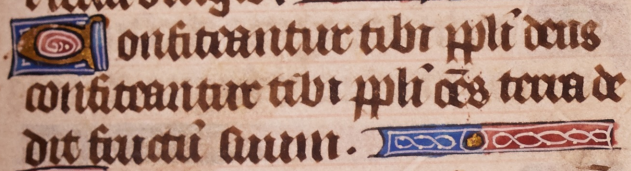 Confiteantur tibi ppl̄i deus
confiteantur tibi ppl̄i oēs terra de
dit fructū suum.